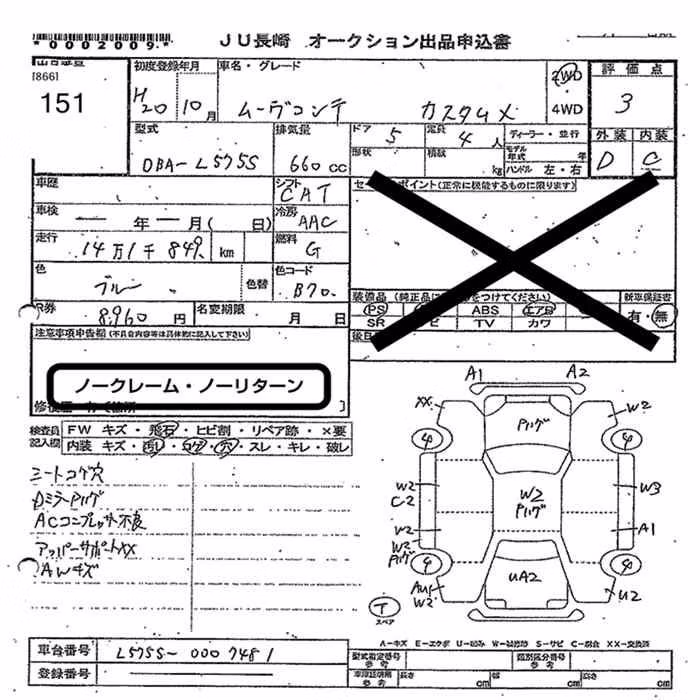 *0002009.* JU長崎 オークション出品申込書
[866]
151
初度登録年月 車名・グレード 2WD 4WD 評価点
H20 10月 ムーヴコンテ カスタムX 3
型式 排気量 ドア 5 定員 4人 ディーラー・並行 外装 内装
DBA-L575S 660cc 形状 積載 kg モデル年式 年 ハンドル 左・右 D C
車歴 シフト CAT
車検 ー年ー月( 日) 冷房 AAC
走行 14万1千849. km 燃料 G
色 ブルー 色替 色コード B70.
R券 8,960円 名変期限 月 日
ポイント(正常に機能するものに限ります)
装備品 (純正品に をつけてください) 新車保証書
PS ABS エアB 有・無
SR TV カワ
注意事項申告欄(不具合内容等は具体的に記入して下さい)
ノークレーム・ノーリターン
検査員記入欄 FW キズ・飛石・ヒビ割・リペア跡・×要
内装 キズ・汚レ・コゲ・穴・スレ・キレ・破レ
シートコゲ穴
DミラーPハゲ
ACコンプレッサ不良
アッパーサポートXX
AWキズ
A1 A2
XX Pハゲ W2
4 4
W2 C2 W2 Pハゲ W3
W2 A1
W2 Pハゲ
4 4
W2 UA2 U2
T スペア
A-キズ E-エクボ U-凹み W-補修跡 S-サビ C-腐食 XX-交換済
車台番号 L575S-0007481
登録番号
型式指定番号 参考 類別区分番号 参考
車庫証明用 参考 長さ cm 幅 cm 高さ cm